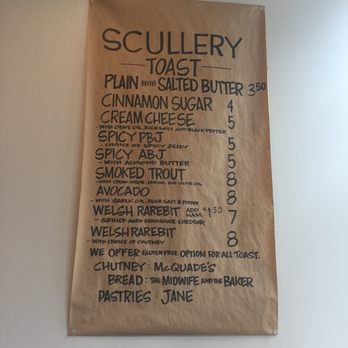 SCULLERY
TOAST
PLAIN WITH SALTED BUTTER 3.50
CINNAMON SUGAR 4
CREAM CHEESE 5
- WITH OLIVE OIL, ROCK SALT AND BLACK PEPPER
SPICY PBJ 5
- CHOICE OF SPICY JELLY
SPICY ABJ 5
- WITH ALMOND BUTTER
SMOKED TROUT 8
- WITH CREAM CHEESE, LEMON, AND OLIVE OIL
AVOCADO 8
- WITH GARLIC OIL, ROCK SALT & PEPPER
WELSH RAREBIT ADD HAM +1.50 7
- GRILLED WITH FARMHOUSE CHEDDAR
WELSH RAREBIT 8
- WITH CHOICE OF CHUTNEY
WE OFFER GLUTEN FREE OPTION FOR ALL TOAST.
CHUTNEY: MCQUADE'S
BREAD: THE MIDWIFE AND THE BAKER
PASTRIES: JANE